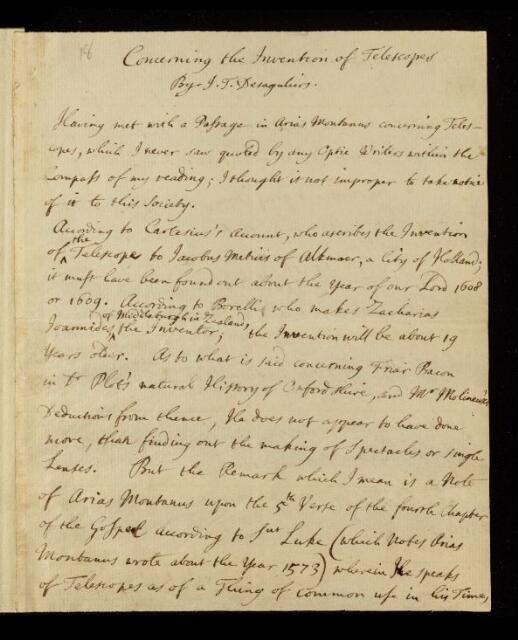 18
Concerning the Invention of Telescopes
By J. T. Desaguliers.
Having met with a Passage in Arias Montanus concerning Teles-
copes, which I never saw quoted by any Optic Writers within the
Compass of my reading; I thought it not improper to take notice
of it to this Society.
According to Cartesius's Account, who ascribes the Invention
of the Telescope to Jacobus Metius of Alkmaer, a City of Holland;
it must have been found out about the Year of our Lord 1608
or 1609. According to Borelli, who makes Zacharias
Joannides, of Middleburgh in Zealand, the Inventor, the Invention will be about 19
Years older. As to what is said concerning Friar Bacon
in Dr Plot's natural History of Oxfordshire, and Mr Molineux's
Deductions from thence, He does not appear to have done
more, than finding out the making of Spectacles or single
Lenses. But the Remark which I mean is a Note
of Arias Montanus upon the 5th Verse of the fourth Chapter
of the Gospel according to Snt Luke (which Notes Arias
Montanus wrote about the Year 1573) wherein He speaks
of Telescopes as of a Thing of common use in his Times,